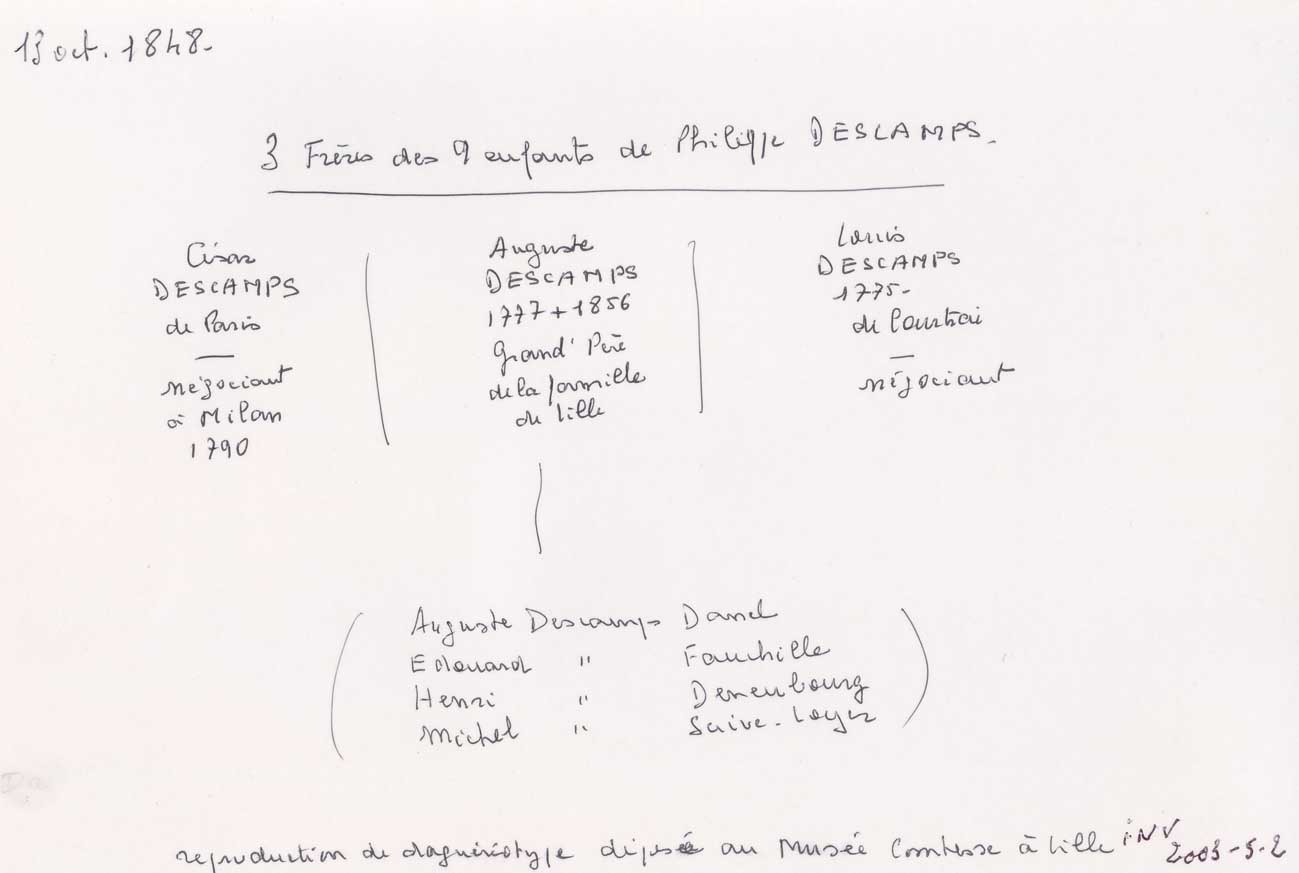 13 oct. 1848.
3 Frères des 9 enfants de Philippe DESCAMPS.
César
DESCAMPS
de Paris
négociant
à Milan
1790
Auguste
DESCAMPS
1777 + 1856
Grand' Père
de la famille
de Lille
Louis
DESCAMPS
1775-
de Courtrai
négociant
Auguste Descamps Danel
Edouard " Fauchille
Henri " Deneubourg
Michel " Saive-Loyer
reproduction de daguérréotype déposé au Musée Comtesse à Lille INV 2003-5-2